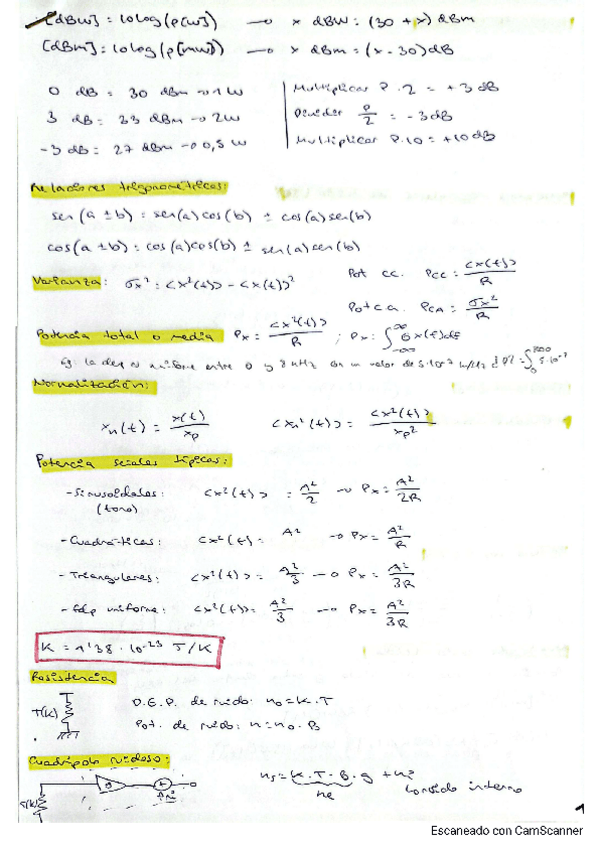 [dBW] = 10log(P[W]) → x dBW = (30 + x) dBm
[dBm] = 10log(P[mW]) → x dBm = (x - 30) dB
0 dB = 30 dBm → 1 W
3 dB = 33 dBm → 2W
-3 dB = 27 dBm → 0,5 W
Multiplicar P · 2 = +3 dB
Dividir P/2 = -3dB
Multiplicar P·10 = +10dB
Relaciones trigonométricas:
sen(a ± b) = sen(a)cos(b) ± cos(a)sen(b)
cos(a ± b) = cos(a)cos(b) ± sen(a)sen(b)
Varianza: σx² = <x²(t)> - <x(t)>² Pot cc. Pcc = <x(t)>/R
Pot c.a. PCA = σx²/R
Potencia total o media Px = <x²(t)>/R ; Px = ∫ Gx(f)df
Ej: la dep n uniforme entre 0 y
Normalización:
xn(t) = x(t)/xp <xn²(t)> = <x²(t)>/xp²
Potencia señales típicas:
- Sinusoidales: <x²(t)> = A²/2 → Px = A²/2R
(tono)
- Cuadráticas: <x²(t) = A² → Px = A²/R
- Triangulares: <x²(t)> = A²/3 → Px = A²/3R
- fdp uniforme: <x²(t)> = A²/3 → Px = A²/3R
K = 1'38 · 10⁻²³ J/K
Resistencia
T(K) D.E.P. de ruido: n₀ = K·T
Pot. de ruido: n = n₀·B
Cuadripolo ruidoso:
T(K) g + ns = K·T·B·g + ni
ne ruido interno
1
Escaneado con CamScanner